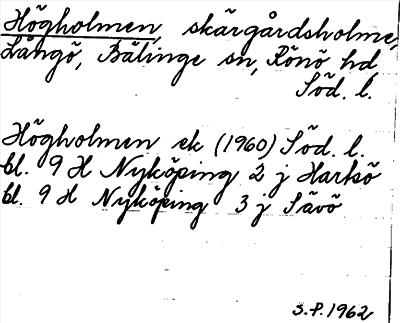 Högholmen, skärgårdsholme,
Långö, Bälinge sn, Rönö hd,
Söd. l.
Högholmen ek (1960) Söd. l.
bl. 9 H Nyköping 2 j Hartsö
bl. 9 H Nyköping 3 j Sävö
3.P.1962